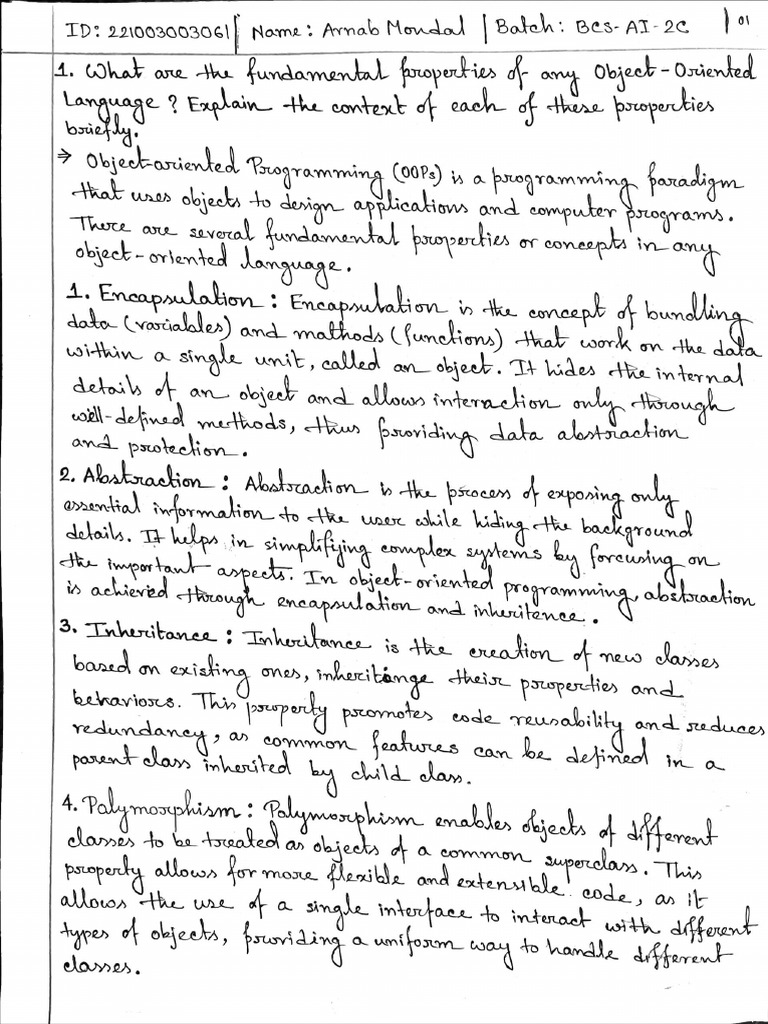 ID: 221003003061 Name: Arnab Mondal Batch: BCS-AI-2C 01
1. What are the fundamental properties of any Object-Oriented
Language? Explain the context of each of these properties
briefly.
⇒ Object-oriented Programming (OOPs) is a programming paradigm
that uses objects to design applications and computer programs.
There are several fundamental properties or concepts in any
object-oriented language.
1. Encapsulation: Encapsulation is the concept of bundling
data (variables) and mathods (functions) that work on the data
within a single unit, called an object. It hides the internal
details of an object and allows interaction only through
well-defined methods, thus providing data abstraction
and protection.
2. Abstraction: Abstraction is the process of exposing only
essential information to the user while hiding the background
details. It helps in simplifying complex systems by forcusing on
the important aspects. In object-oriented programming, abstraction
is achieved through encapsulation and inheritence.
3. Inheritance: Inheritance is the creation of new classes
based on existing ones, inheritinge their properties and
behaviors. This property promotes code reusability and reduces
redundancy, as common features can be defined in a
parent class inherited by child class.
4. Polymorphism: Polymorphism enables objects of different
classes to be treated as objects of a common superclass. This
property allows for more flexible and extensible code, as it
allows the use of a single interface to interact with different
types of objects, providing a uniform way to handle different
classes.